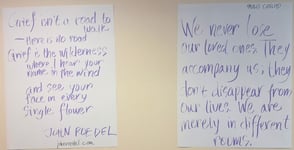 Grief isn't a road to
walk
— there is no road
Grief is the wilderness
where I hear your
name in the wind
and see your
face on every
single flower
JOHN ROEDEL
johnroedel.com
PAULO COELHO
We never lose
our loved ones. They
accompany us, they
don't disappear from
our lives. We are
merely in different
rooms.